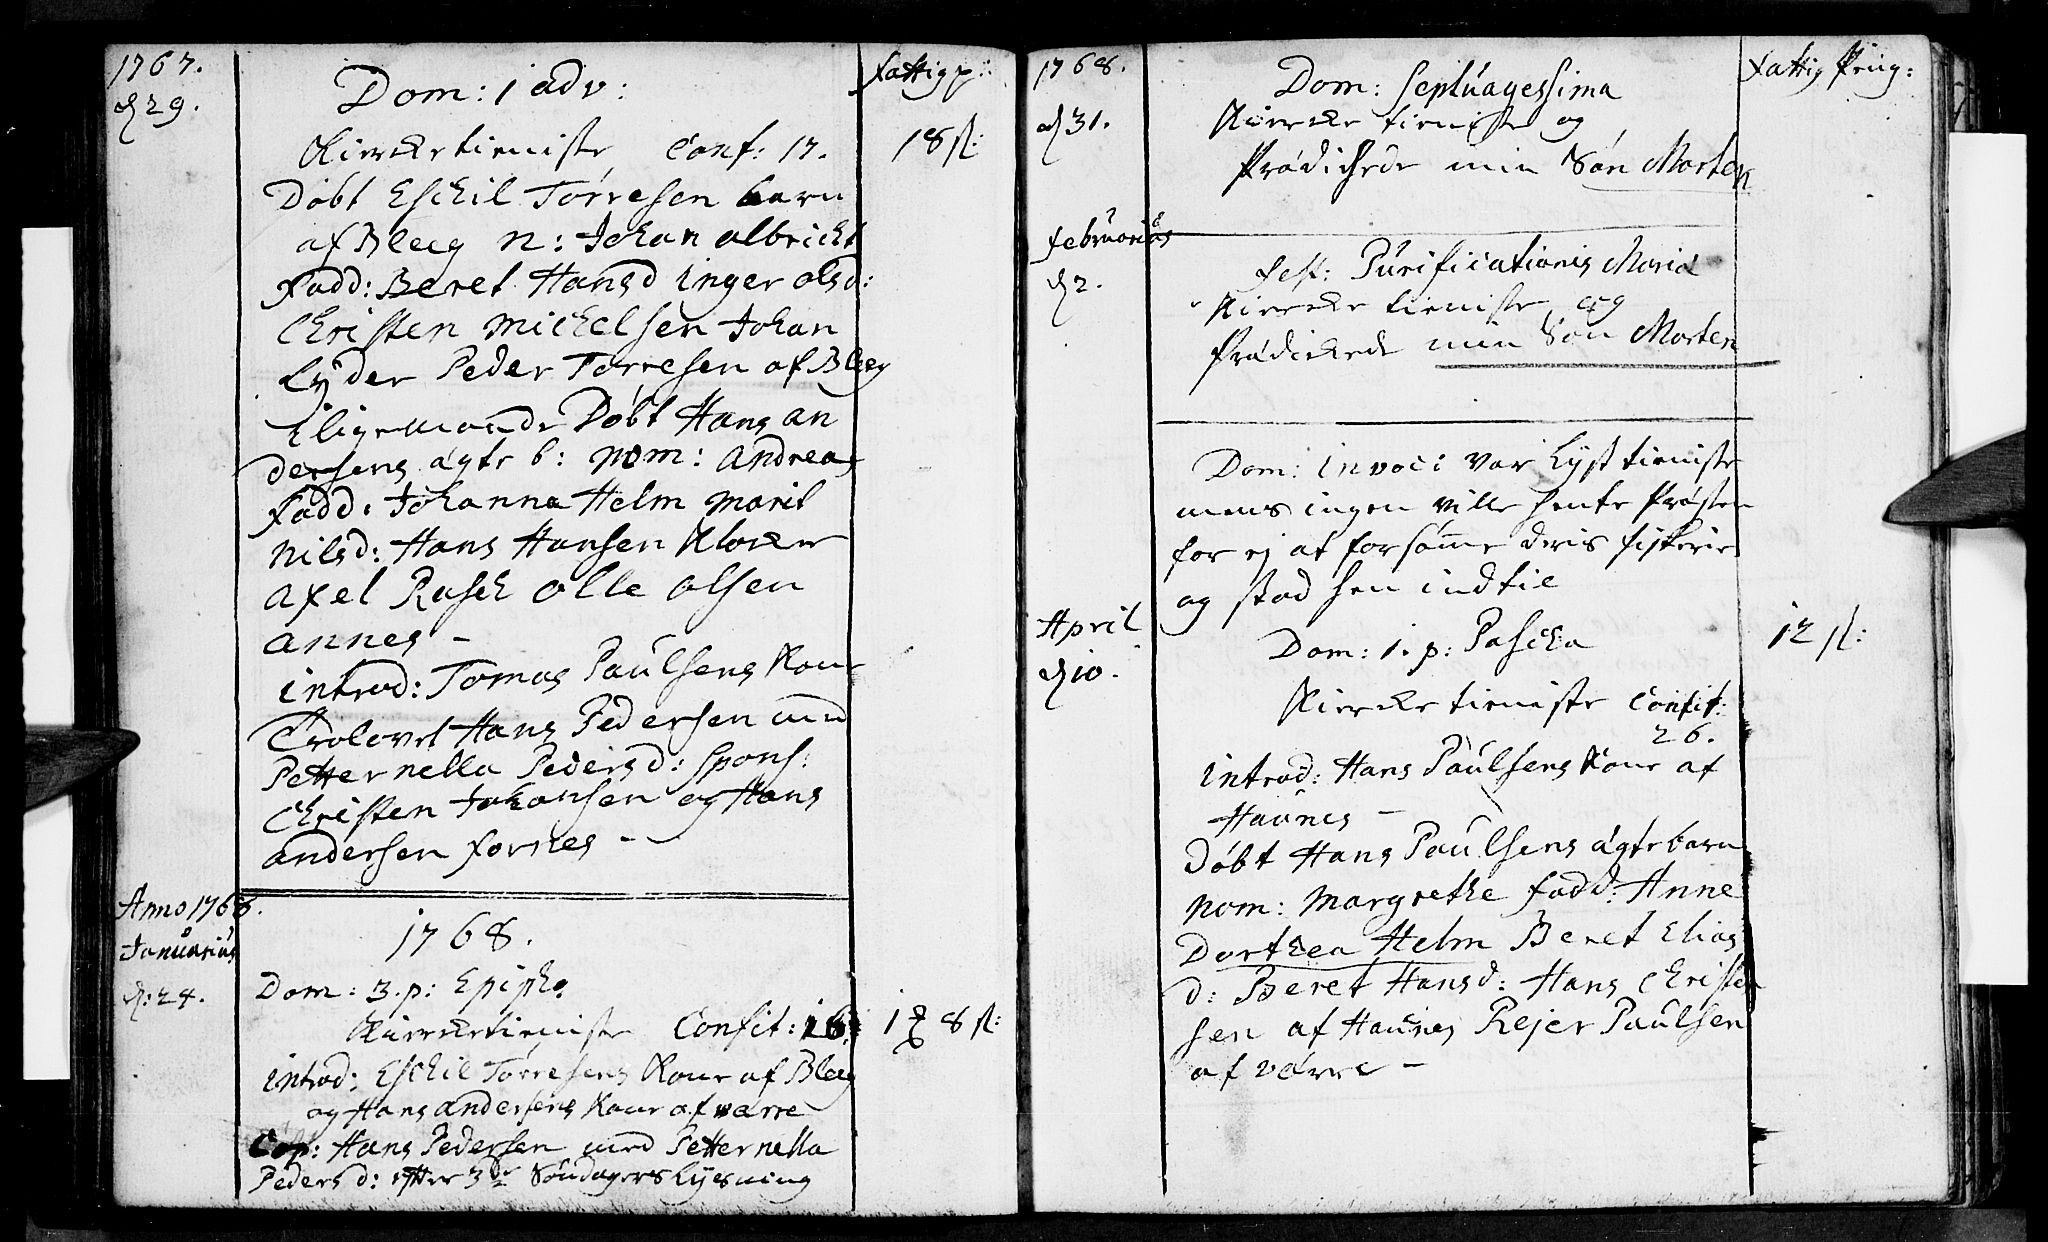 1767.
d 29.
Fattigp:
Dom: 1 adv:
Kierketieniste Conf: 17.
18 sl:
Döbt Eschil Torresen barn
af Bleeg N: Johan albricht
Fadd: Beret Hansd Inger olsd:
Christen Michelsen Johan
Lyder Peder Torresen af Bleeg
Eligemaade Döbt Hans an
dersens ägte b: Nom: Andreas
Fadd: Johanna Helm Marit
Nilsd: Hans Hansen Klocker
Axel Rasch olle olsen
annes -
introd: Tomas Paulsens Kone
Trolovet Hans Pedersen med
Petternella Pedersd: Spons:
Christen Johansen og Hans
andersen fornes -
Anno 1768.
Januarius
d: 24.
1768.
Dom: 3. p: Epiph:
Kierketieniste Confit: 16:
1 8 sl:
introd: Eschil Torresens Kone af Bleeg
og Hans andersens Kone af værre
Cop: Hans Pedersen med Petternella
Peders d: efter 3de Söndagers Lysning
1768.
d 31.
Fattig Peng:
Dom: Septuagessima
Kierke tieniste og
Prædichede min Sön Morten
Februarius
d 2.
Fest: Purificationis Mariæ
Kierke tieniste og
Prædickede min Sön Morten
Dom: invoci var Lyst tieniste
mens ingen ville hente Præsten
for ej at forsömme deris fiskerie
og stod hen indtil
April
d 10.
Dom: 1. p: Pascha
12 sl:
Kierke tieniste Confit:
26.
introd: Hans Paulsens Kone af
Haunes -
Döbt Hans Paulsens ägte barn
Nom: Margrethe Fadd: Anne
Dorthea Helm Beret Elias
d: Beret Hansd: Hans Christen
sen af Haunes Rejer Paulsen
af värre -